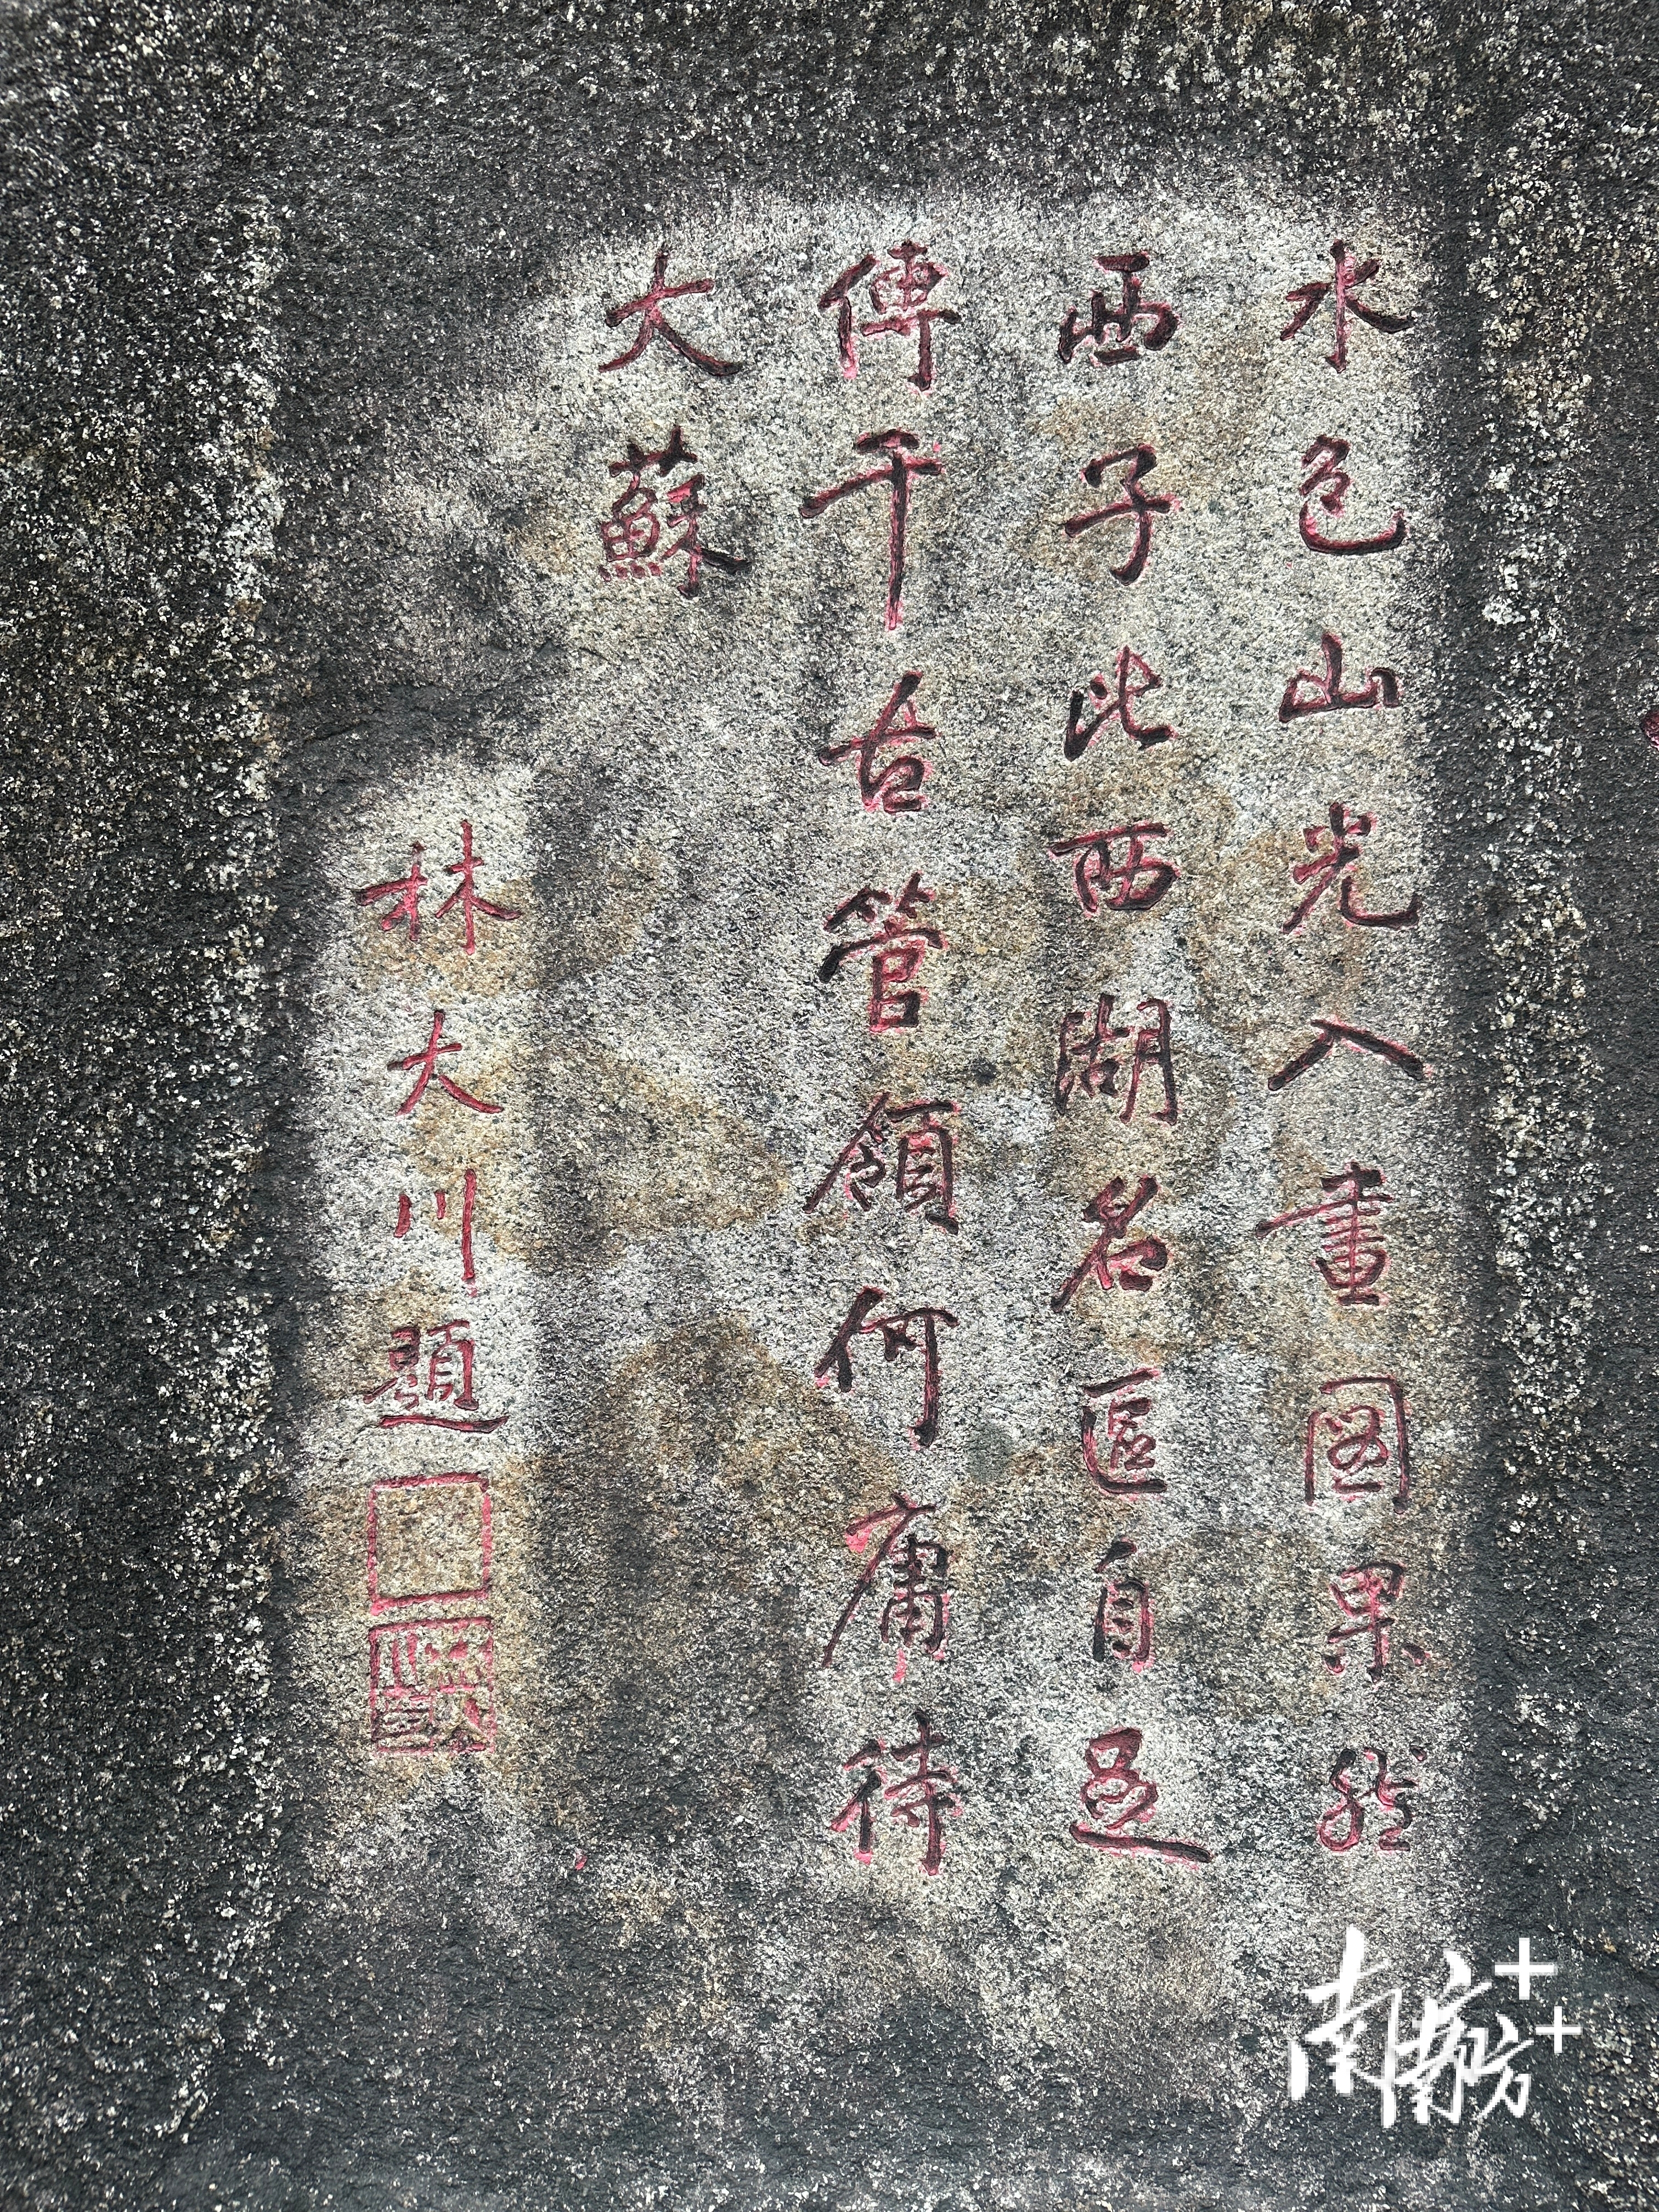 水色山光入畫圖果然
西子比西湖名區自足
傳千古管領何庸待
大蘇
林大川題
南方+